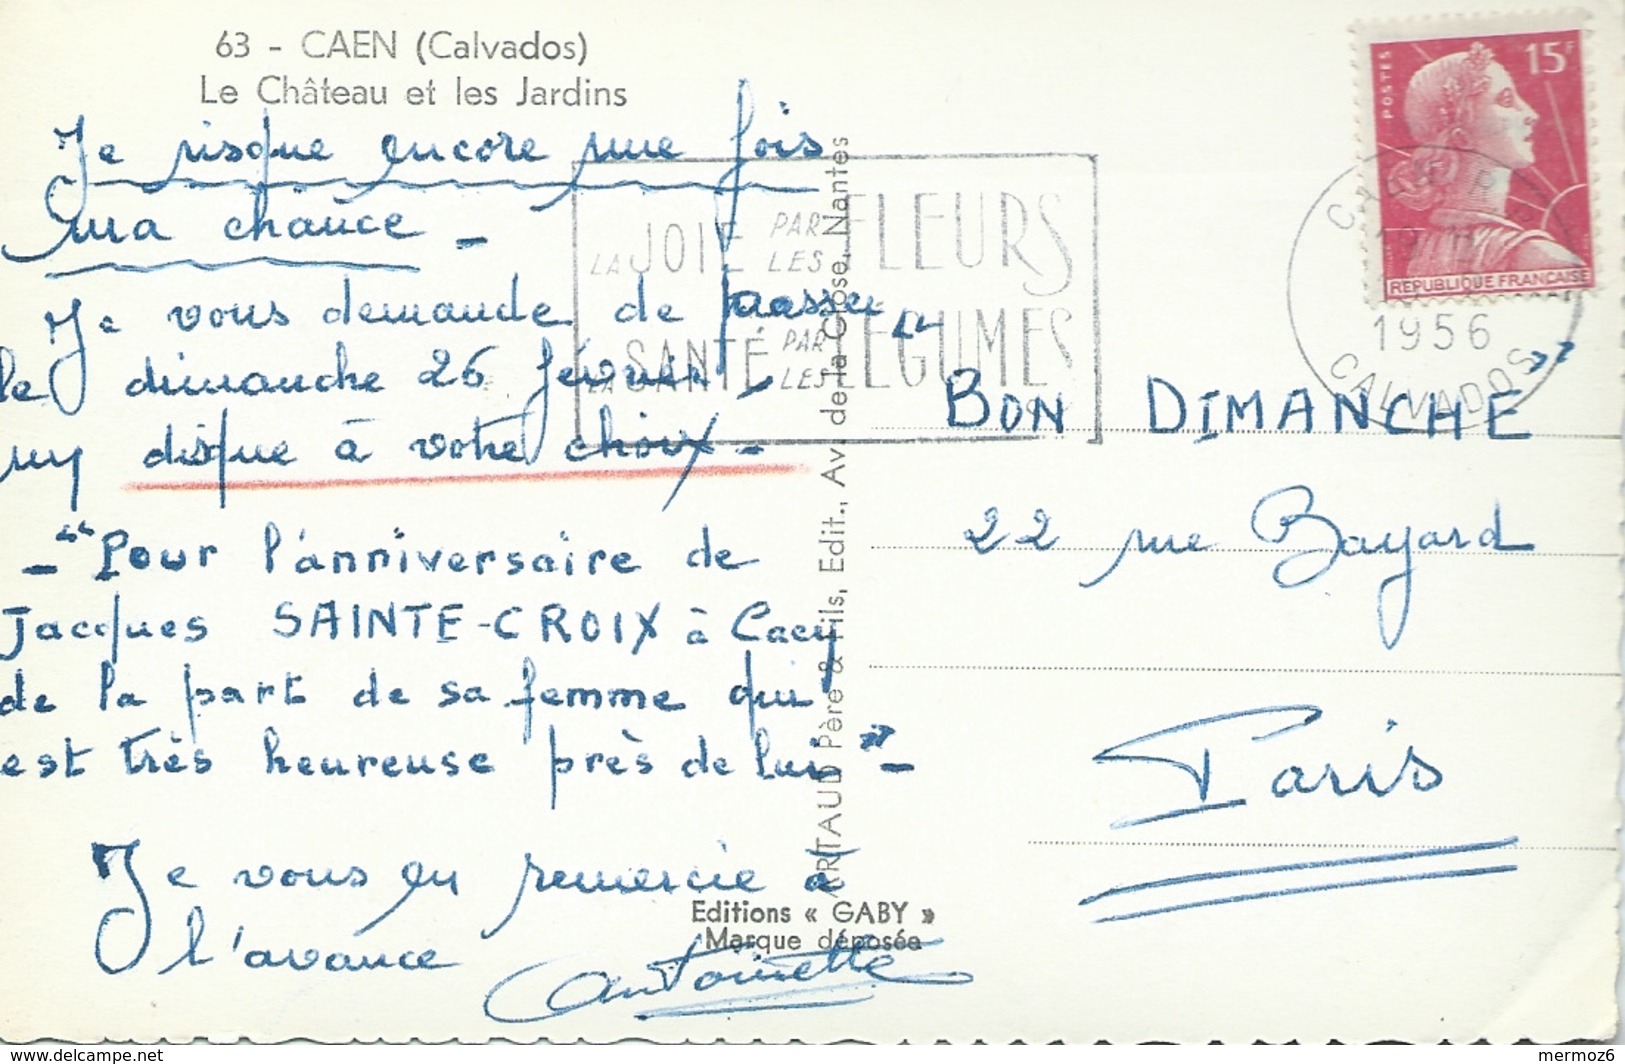 63 - CAEN (Calvados)
Le Château et les Jardins
Je risque encore une fois
ma chance -
Je vous demande de passer
le dimanche 26 février -
un disque à votre choix -
- "Pour l'anniversaire de
Jacques SAINTE-CROIX à Caen
de la part de sa femme qui
est très heureuse près de lui" -
Je vous en remercie à
l'avance
Antoinette
LA JOIE PAR LES FLEURS
LA SANTÉ PAR LES LEGUMES
ARTAUD Père & Fils, Edit., Av. de la Close, Nantes
Editions « GABY »
Marque déposée
POSTES
15F
REPUBLIQUE FRANÇAISE
1956
CALVADOS
"BON DIMANCHE"
22 rue Bayard
Paris
www.delcampe.net
mermoz6